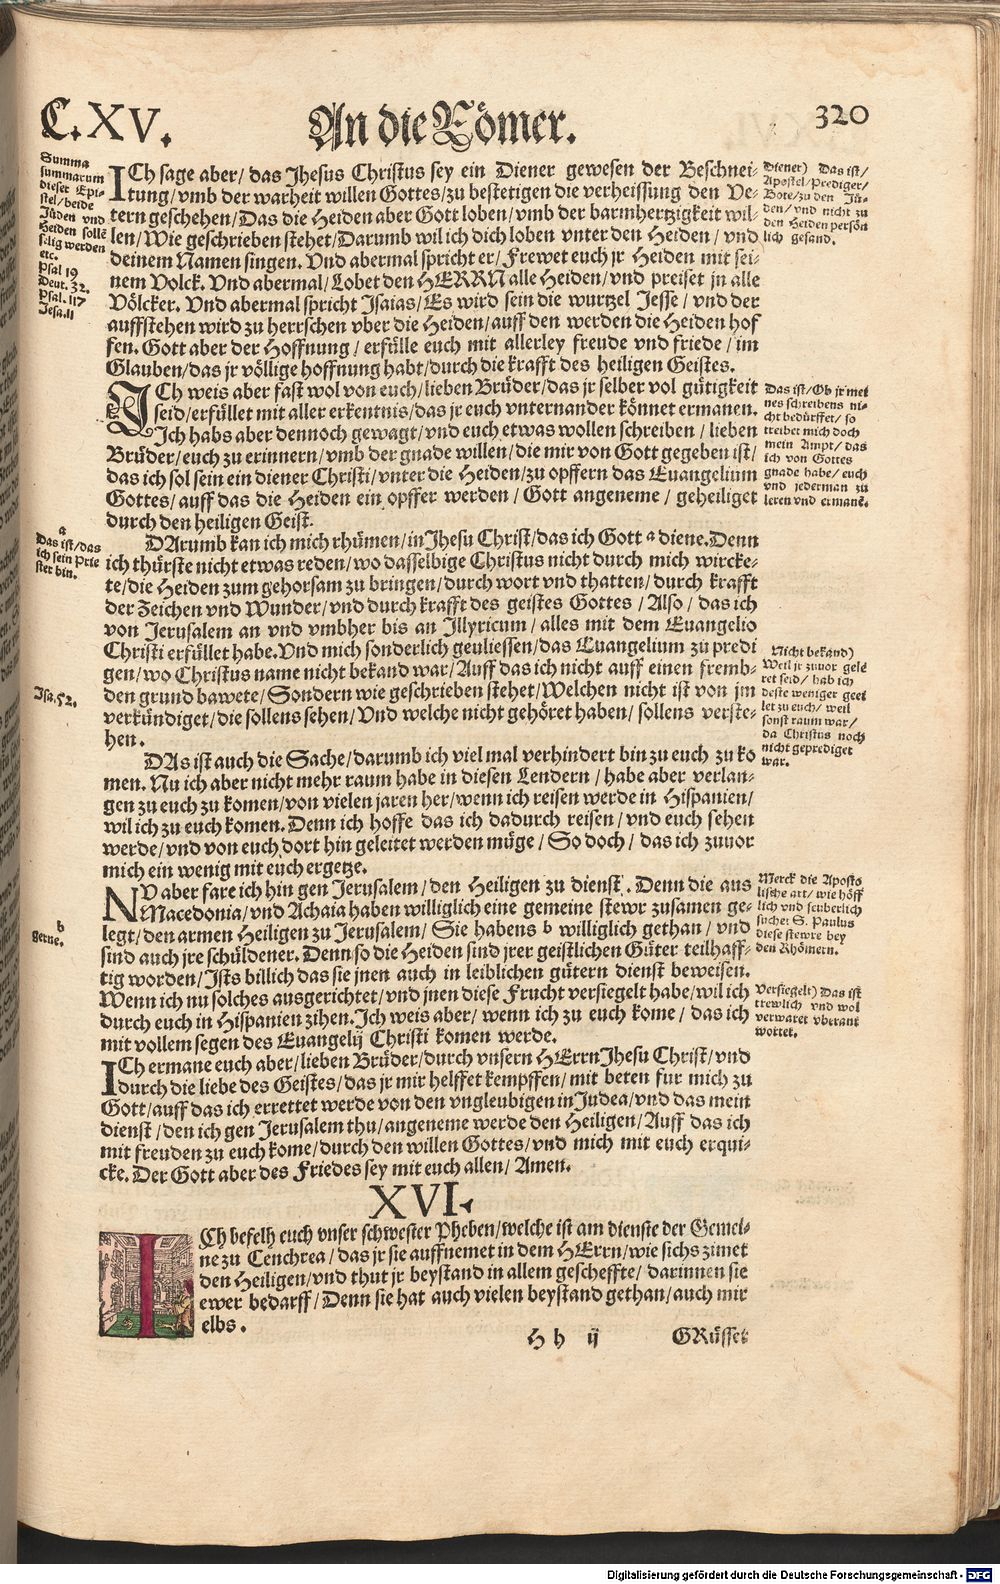 C. XV.
An die Römer.
320
Summa
summarum
dieser Epi-
stel/beide
Jüden vnd
Heiden sollē
selig werden
etc.
Psal 19
Deut. 32.
Psal. 117
Jesa. 11
ICh sage aber/ das Jhesus Christus sey ein Diener gewesen der Beschnei-
tung/ vmb der warheit willen Gottes/ zu bestetigen die verheissung den Ve-
tern geschehen/ Das die Heiden aber Gott loben/ vmb der barmhertzigkeit wil
len/ Wie geschrieben stehet/ Darumb wil ich dich loben vnter den Heiden/ vnd
deinem Namen singen. Vnd abermal spricht er/ Frewet euch jr Heiden mit sei-
nem Volck. Vnd abermal/ Lobet den HERRN alle Heiden/ vnd preiset jn alle
Völcker. Vnd abermal spricht Isaias/ Es wird sein die wurtzel Jesse/ vnd der
auffstehen wird zu herrschen vber die Heiden/ auff den werden die Heiden hof
fen. Gott aber der Hoffnung/ erfülle euch mit allerley freude vnd friede/ im
Glauben/ das jr völlige hoffnung habt/ durch die krafft des heiligen Geistes.
Diener) Das ist/
Apostel/ Prediger/
Bote/ zu den Jü-
den/ vnd nicht zu
den Heiden persön
lich gesand.
ICh weis aber fast wol von euch/ lieben Brüder/ das jr selber vol gütigkeit
seid/ erfüllet mit aller erkentnis/ das jr euch vnternander könnet ermanen.
Ich habs aber dennoch gewagt/ vnd euch etwas wollen schreiben/ lieben
Brüder/ euch zu erinnern/ vmb der gnade willen/ die mir von Gott gegeben ist/
das ich sol sein ein diener Christi/ vnter die Heiden/ zu opffern das Euangelium
Gottes/ auff das die Heiden ein opffer werden/ Gott angeneme/ geheiliget
durch den heiligen Geist.
Das ist/ Ob jr mei
nes schreibens ni-
cht bedürffet/ so
treibet mich doch
mein Ampt/ das
ich von Gottes
gnade habe/ euch
vnd jederman zu
leren vnd ermanē.
a
Das ist/ das
ich sein Prie
ster bin.
DArumb kan ich mich rhümen/ in Jhesu Christ/ das ich Gott a diene. Denn
ich thürste nicht etwas reden/ wo dasselbige Christus nicht durch mich wircke-
te/ die Heiden zum gehorsam zu bringen/ durch wort vnd thatten/ durch krafft
der Zeichen vnd Wunder/ vnd durch krafft des geistes Gottes/ Also/ das ich
von Jerusalem an vnd vmbher bis an Illyricum/ alles mit dem Euangelio
Christi erfüllet habe. Vnd mich sonderlich geuliessen/ das Euangelium zu predi
gen/ wo Christus name nicht bekand war/ Auff das ich nicht auff einen fremb-
den grund bawete/ Sondern wie geschrieben stehet/ Welchen nicht ist von jm
verkündiget/ die sollens sehen/ Vnd welche nicht gehöret haben/ sollens verste-
hen.
Isa. 52.
Nicht bekand)
Weil jr zuuor gele
ret seid/ hab ich
deste weniger geei
let zu euch/ weil
sonst raum war/
da Christus noch
nicht geprediget
war.
DAs ist auch die Sache/ darumb ich viel mal verhindert bin zu euch zu ko
men. Nu ich aber nicht mehr raum habe in diesen Lendern/ habe aber verlan-
gen zu euch zu komen/ von vielen jaren her/ wenn ich reisen werde in Hispanien/
wil ich zu euch komen. Denn ich hoffe das ich dadurch reisen/ vnd euch sehen
werde/ vnd von euch dort hin geleitet werden müge/ So doch/ das ich zuuor
mich ein wenig mit euch ergetze.
NV aber fare ich hin gen Jerusalem/ den Heiligen zu dienst. Denn die aus
Macedonia/ vnd Achaia haben williglich eine gemeine stewr zusamen ge-
legt/ den armen Heiligen zu Jerusalem/ Sie habens b williglich gethan/ vnd
sind auch jre schüldener. Denn so die Heiden sind jrer geistlichen Güter teilhaff-
tig worden/ Ists billich das sie jnen auch in leiblichen gütern dienst beweisen.
Wenn ich nu solches ausgerichtet/ vnd jnen diese Frucht versiegelt habe/ wil ich
durch euch in Hispanien zihen. Ich weis aber/ wenn ich zu euch kome/ das ich
mit vollem segen des Euangelij Christi komen werde.
b
gerne.
Merck die Aposto
lische art/ wie höff
lich vnd seuberlich
suchet S. Paulus
diese stewre bey
den Rhömern.
Versiegelt) Das ist
trewlich vnd wol
verwaret vberant
wortet.
ICh ermane euch aber/ lieben Brüder/ durch vnsern HErrn Jhesu Christ/ vnd
durch die liebe des Geistes/ das jr mir helffet kempffen/ mit beten fur mich zu
Gott/ auff das ich errettet werde von den vngleubigen in Judea/ vnd das mein
dienst/ den ich gen Jerusalem thu/ angeneme werde den Heiligen/ Auff das ich
mit freuden zu euch kome/ durch den willen Gottes/ vnd mich mit euch erqui-
cke. Der Gott aber des Friedes sey mit euch allen/ Amen.
XVI.
ICh befelh euch vnser schwester Pheben/ welche ist am dienste der Gemei-
ne zu Cenchrea/ das jr sie auffnemet in dem HErrn/ wie sichs zimet
den Heiligen/ vnd thut jr beystand in allem gescheffte/ darinnen sie
ewer bedarff/ Denn sie hat auch vielen beystand gethan/ auch mir
elbs.
H h ij
GRüsset
Digitalisierung gefördert durch die Deutsche Forschungsgemeinschaft - DFG